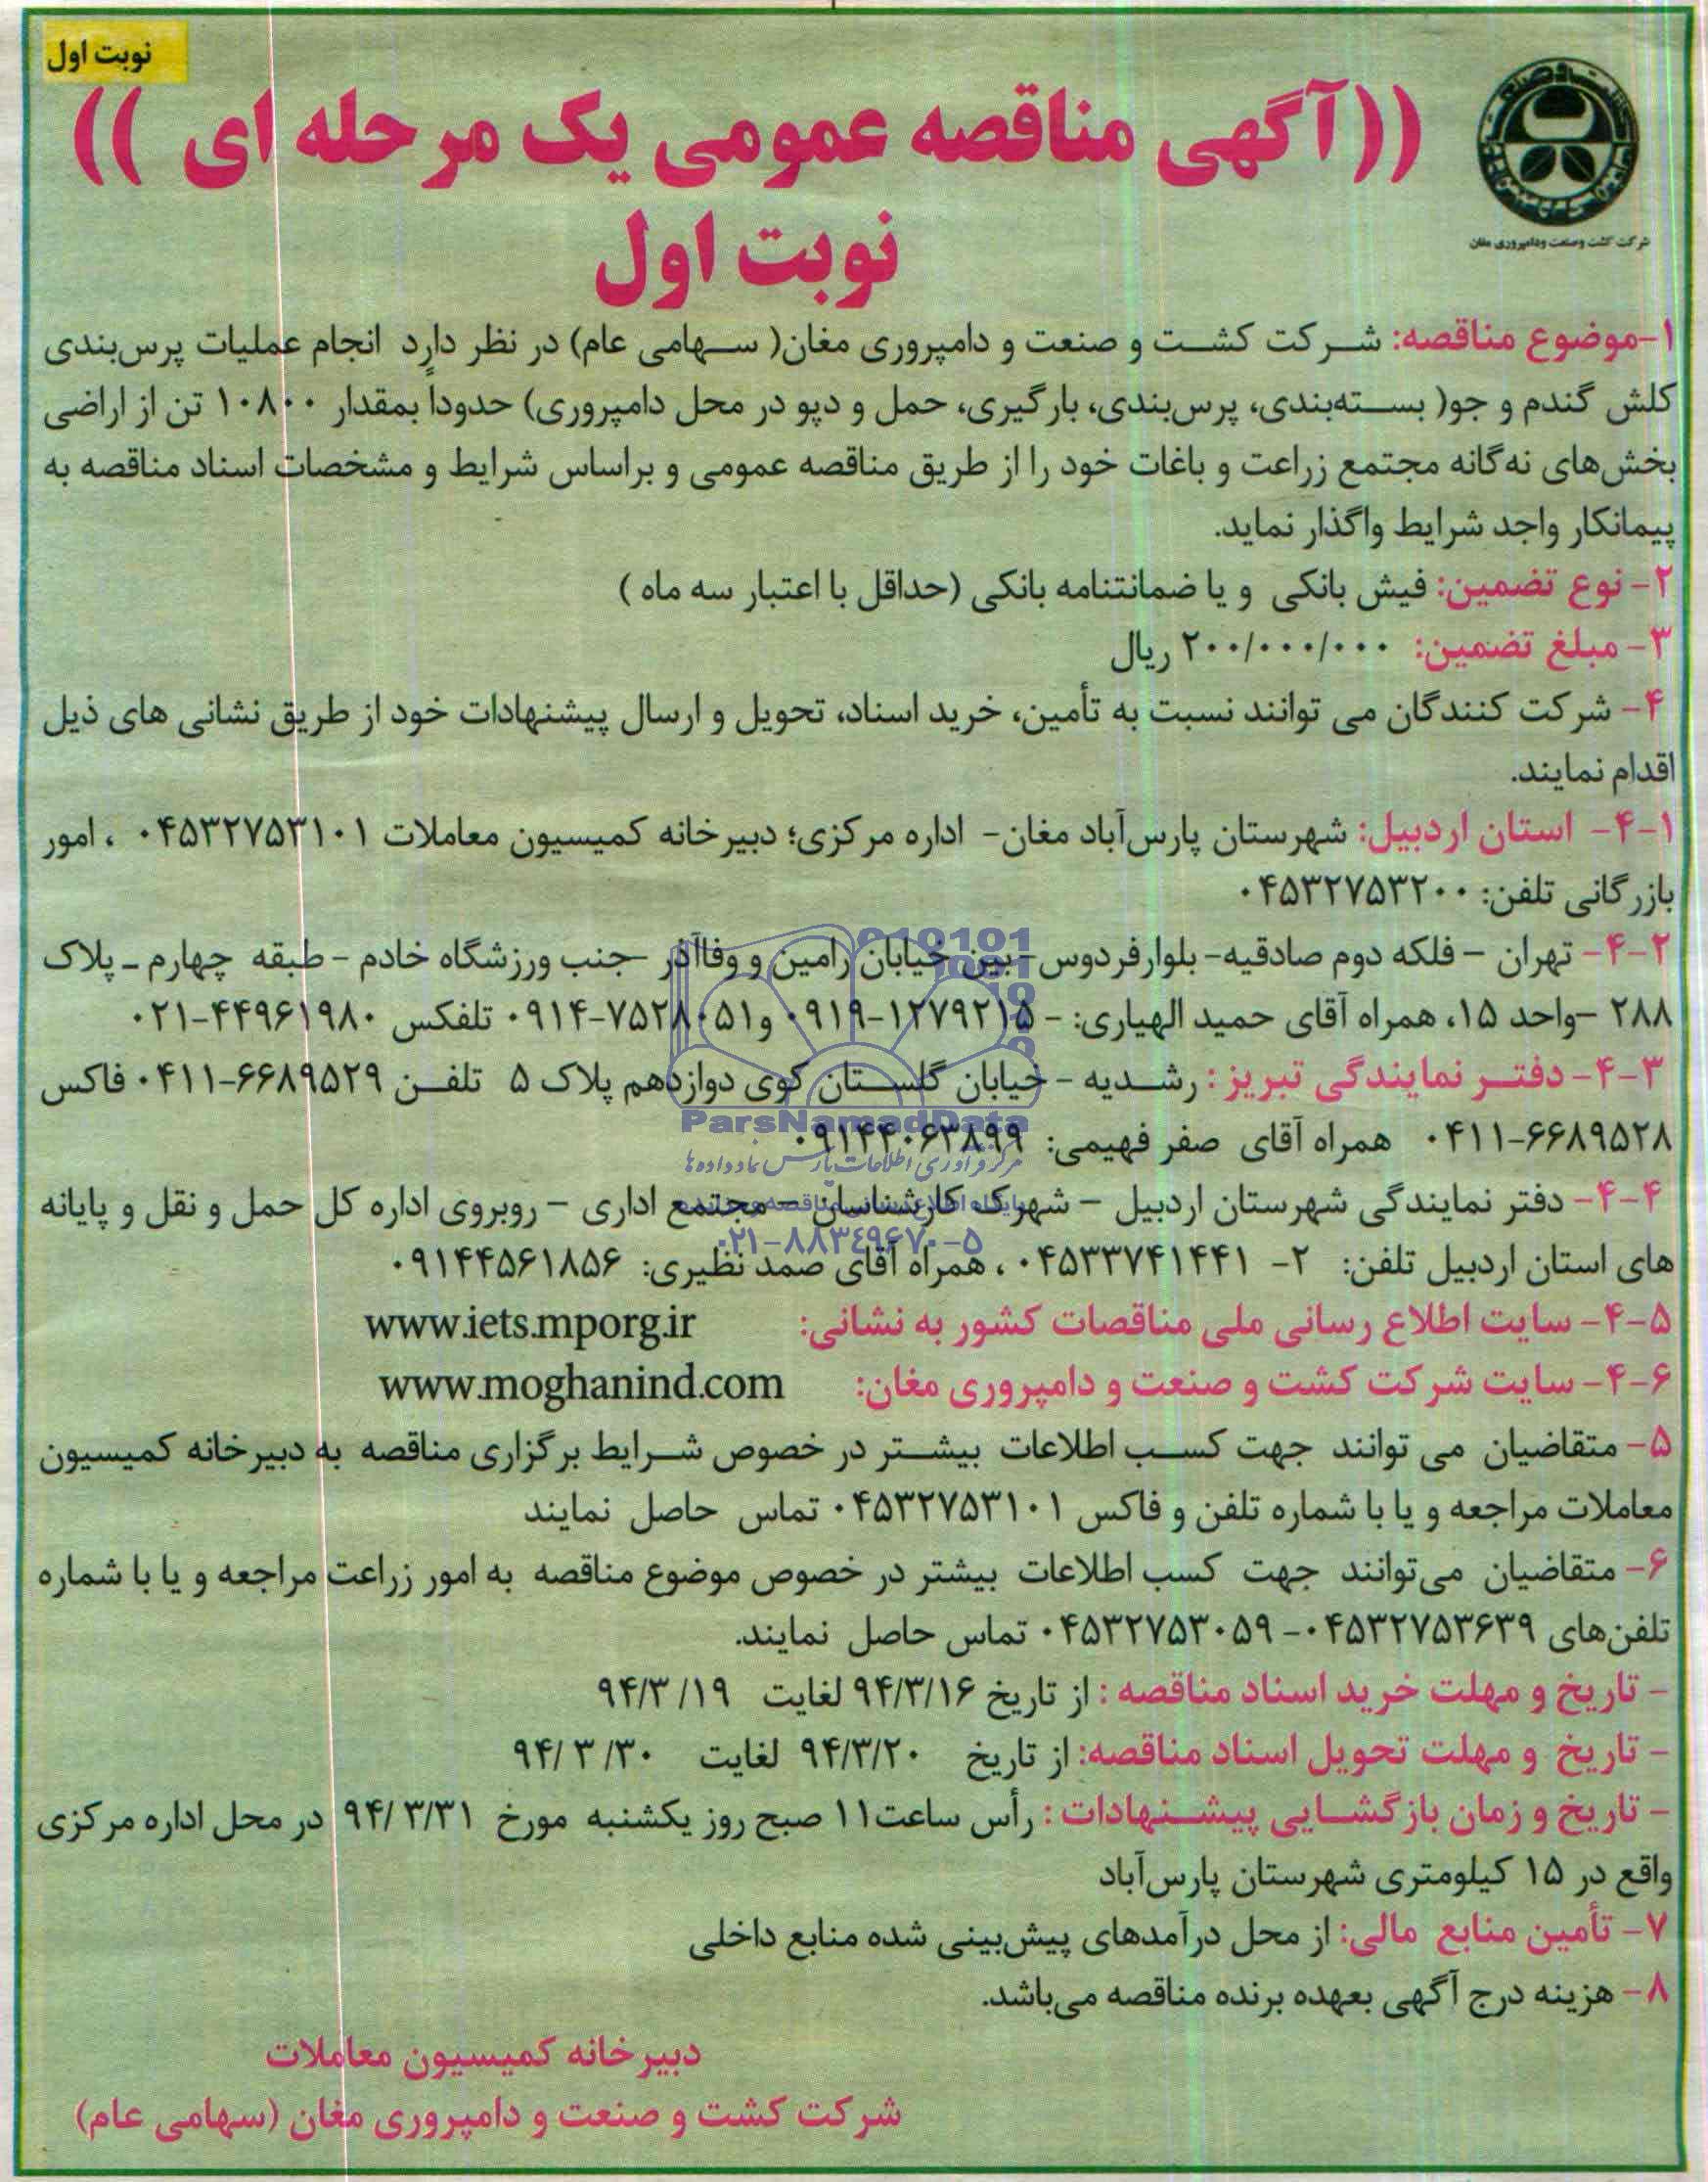 نوبت اول
((آگهی مناقصه عمومی یک مرحله ای ))
نوبت اول
شرکت کشت وصنعت ودامپروری مغان
۱-موضوع مناقصه: شرکت کشت و صنعت و دامپروری مغان( سهامی عام) در نظر دارد انجام عملیات پرس‌بندی
کلش گندم و جو( بسته‌بندی، پرس‌بندی، بارگیری، حمل و دپو در محل دامپروری) حدوداً بمقدار ۱۰۸۰۰ تن از اراضی
بخش‌های نه گانه مجتمع زراعت و باغات خود را از طریق مناقصه عمومی و براساس شرایط و مشخصات اسناد مناقصه به
پیمانکار واجد شرایط واگذار نماید.
۲- نوع تضمین: فیش بانکی و یا ضمانتنامه بانکی (حداقل با اعتبار سه ماه )
۳- مبلغ تضمین: ۲۰۰/۰۰۰/۰۰۰ ریال
۴- شرکت کنندگان می توانند نسبت به تأمین، خرید اسناد، تحویل و ارسال پیشنهادات خود از طریق نشانی های ذیل
اقدام نمایند.
۴-۱- استان اردبیل: شهرستان پارس‌آباد مغان- اداره مرکزی؛ دبیرخانه کمیسیون معاملات ۰۴۵۳۲۷۵۳۱۰۱ ، امور
بازرگانی تلفن: ۰۴۵۳۲۷۵۳۲۰۰
۴-۲- تهران - فلکه دوم صادقیه- بلوارفردوس- بین خیابان رامین و وفاآذر -جنب ورزشگاه خادم - طبقه چهارم - پلاک
۲۸۸ -واحد ۱۵، همراه آقای حمید الهیاری: - ۰۹۱۹-۱۲۷۹۲۱۵ و۰۹۱۴-۷۵۲۸۰۵۱ تلفکس ۰۲۱-۴۴۹۶۱۹۸۰
۴-۳- دفتر نمایندگی تبریز : رشدیه - خیابان گلستان کوی دوازدهم پلاک ۵ تلفن ۰۴۱۱-۶۶۸۹۵۲۹ فاکس
۰۴۱۱-۶۶۸۹۵۲۸ همراه آقای صفر فهیمی: ۰۹۱۴۴۰۶۳۸۹۹
۴-۴- دفتر نمایندگی شهرستان اردبیل - شهرک کارشناسان - مجتمع اداری - روبروی اداره کل حمل و نقل و پایانه
های استان اردبیل تلفن: ۲- ۰۴۵۳۳۷۴۱۴۴۱ ، همراه آقای صمد نظیری: ۰۹۱۴۴۵۶۱۸۵۶
۴-۵- سایت اطلاع رسانی ملی مناقصات کشور به نشانی: www.iets.mporg.ir
۴-۶- سایت شرکت کشت و صنعت و دامپروری مغان: www.moghanind.com
۵- متقاضیان می توانند جهت کسب اطلاعات بیشتر در خصوص شرایط برگزاری مناقصه به دبیرخانه کمیسیون
معاملات مراجعه و یا با شماره تلفن و فاکس ۰۴۵۳۲۷۵۳۱۰۱ تماس حاصل نمایند
۶- متقاضیان می‌توانند جهت کسب اطلاعات بیشتر در خصوص موضوع مناقصه به امور زراعت مراجعه و یا با شماره
تلفن‌های ۰۴۵۳۲۷۵۳۶۳۹- ۰۴۵۳۲۷۵۳۰۵۹ تماس حاصل نمایند.
- تاریخ و مهلت خرید اسناد مناقصه : از تاریخ ۹۴/۳/۱۶ لغایت ۹۴/۳/۱۹
- تاریخ و مهلت تحویل اسناد مناقصه: از تاریخ ۹۴/۳/۲۰ لغایت ۹۴/۳/۳۰
- تاریخ و زمان بازگشایی پیشنهادات : رأس ساعت۱۱ صبح روز یکشنبه مورخ ۹۴/۳/۳۱ در محل اداره مرکزی
واقع در ۱۵ کیلومتری شهرستان پارس‌آباد
۷- تأمین منابع مالی: از محل درآمدهای پیش‌بینی شده منابع داخلی
۸- هزینه درج آگهی بعهده برنده مناقصه می‌باشد.
دبیرخانه کمیسیون معاملات
شرکت کشت و صنعت و دامپروری مغان (سهامی عام)
ParsNamadData
مرکز فرآوری اطلاعات پارس نماد داده ها
۰۲۱-۸۸۳۴۹۶۷۰-۵